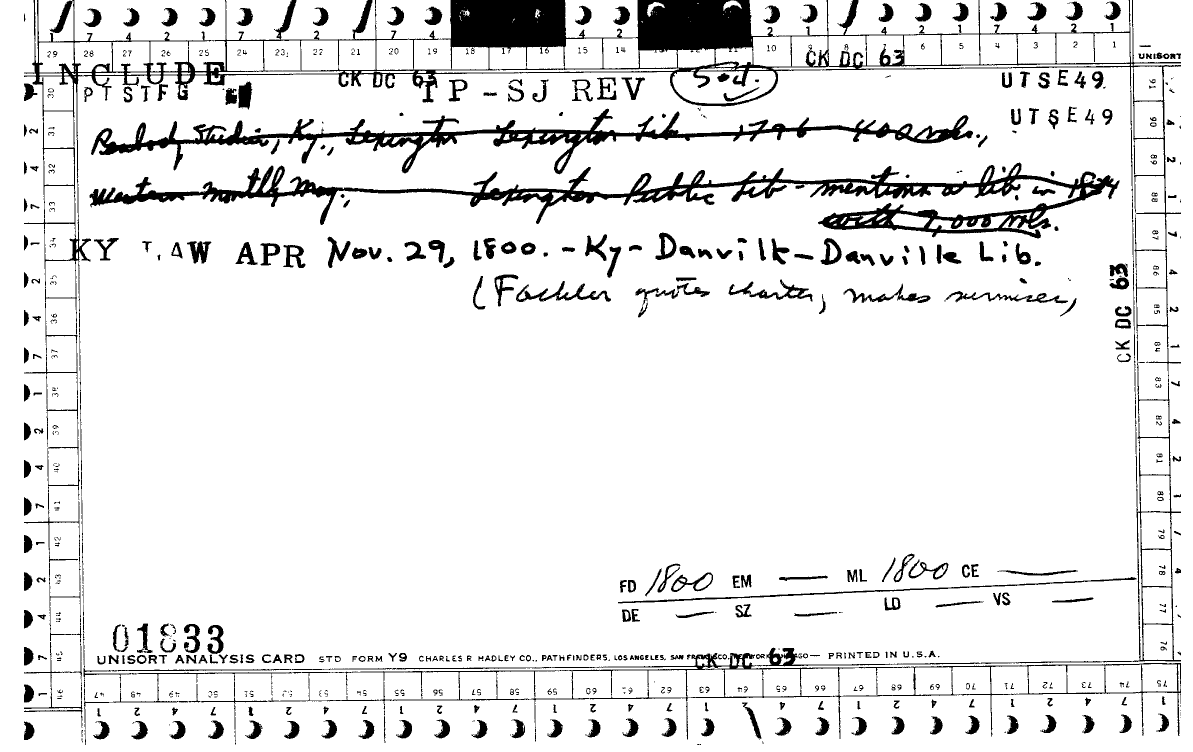 1 7 4 2 1 7 4 2 1 7 4 4 2 2 1 7 4 2 1 7 4 2 1
29 28 27 26 25 24 23 22 21 20 19 18 17 16 15 14 11 10 9 8 6 5 4 3 2 1 UNISORT
CK DC 63
INCLUDE CK DC 63 UTSE49
PTSTFG TP-SJ REV Sod.
UTSE49
Peabody, Studies, Ky., Lexington Lexington Lib. 1796 400 vols.,
Western Monthly Mag., Lexington Public Lib - mentions a lib. in 1834
with 7,000 vols.
KY LAW APR Nov. 29, 1800. - Ky - Danville - Danville Lib.
(Fackler quotes charter, makes surmises)
CK DC 63
FD 1800 EM — ML 1800 CE —
DE — SZ — LD — VS —
01833
UNISORT ANALYSIS CARD STD FORM Y9 CHARLES R HADLEY CO., PATHFINDERS, LOS ANGELES, SAN FRANCISCO, NEW YORK, CHICAGO — PRINTED IN U.S.A.
CK DC 63
47 48 49 50 51 52 53 54 55 56 57 58 59 60 61 62 63 64 65 66 67 68 69 70 71 72 73 74 75
1 2 4 7 1 2 4 7 1 2 4 7 1 2 4 7 1 2 4 7 1 2 4 7 1 2 4 7 1